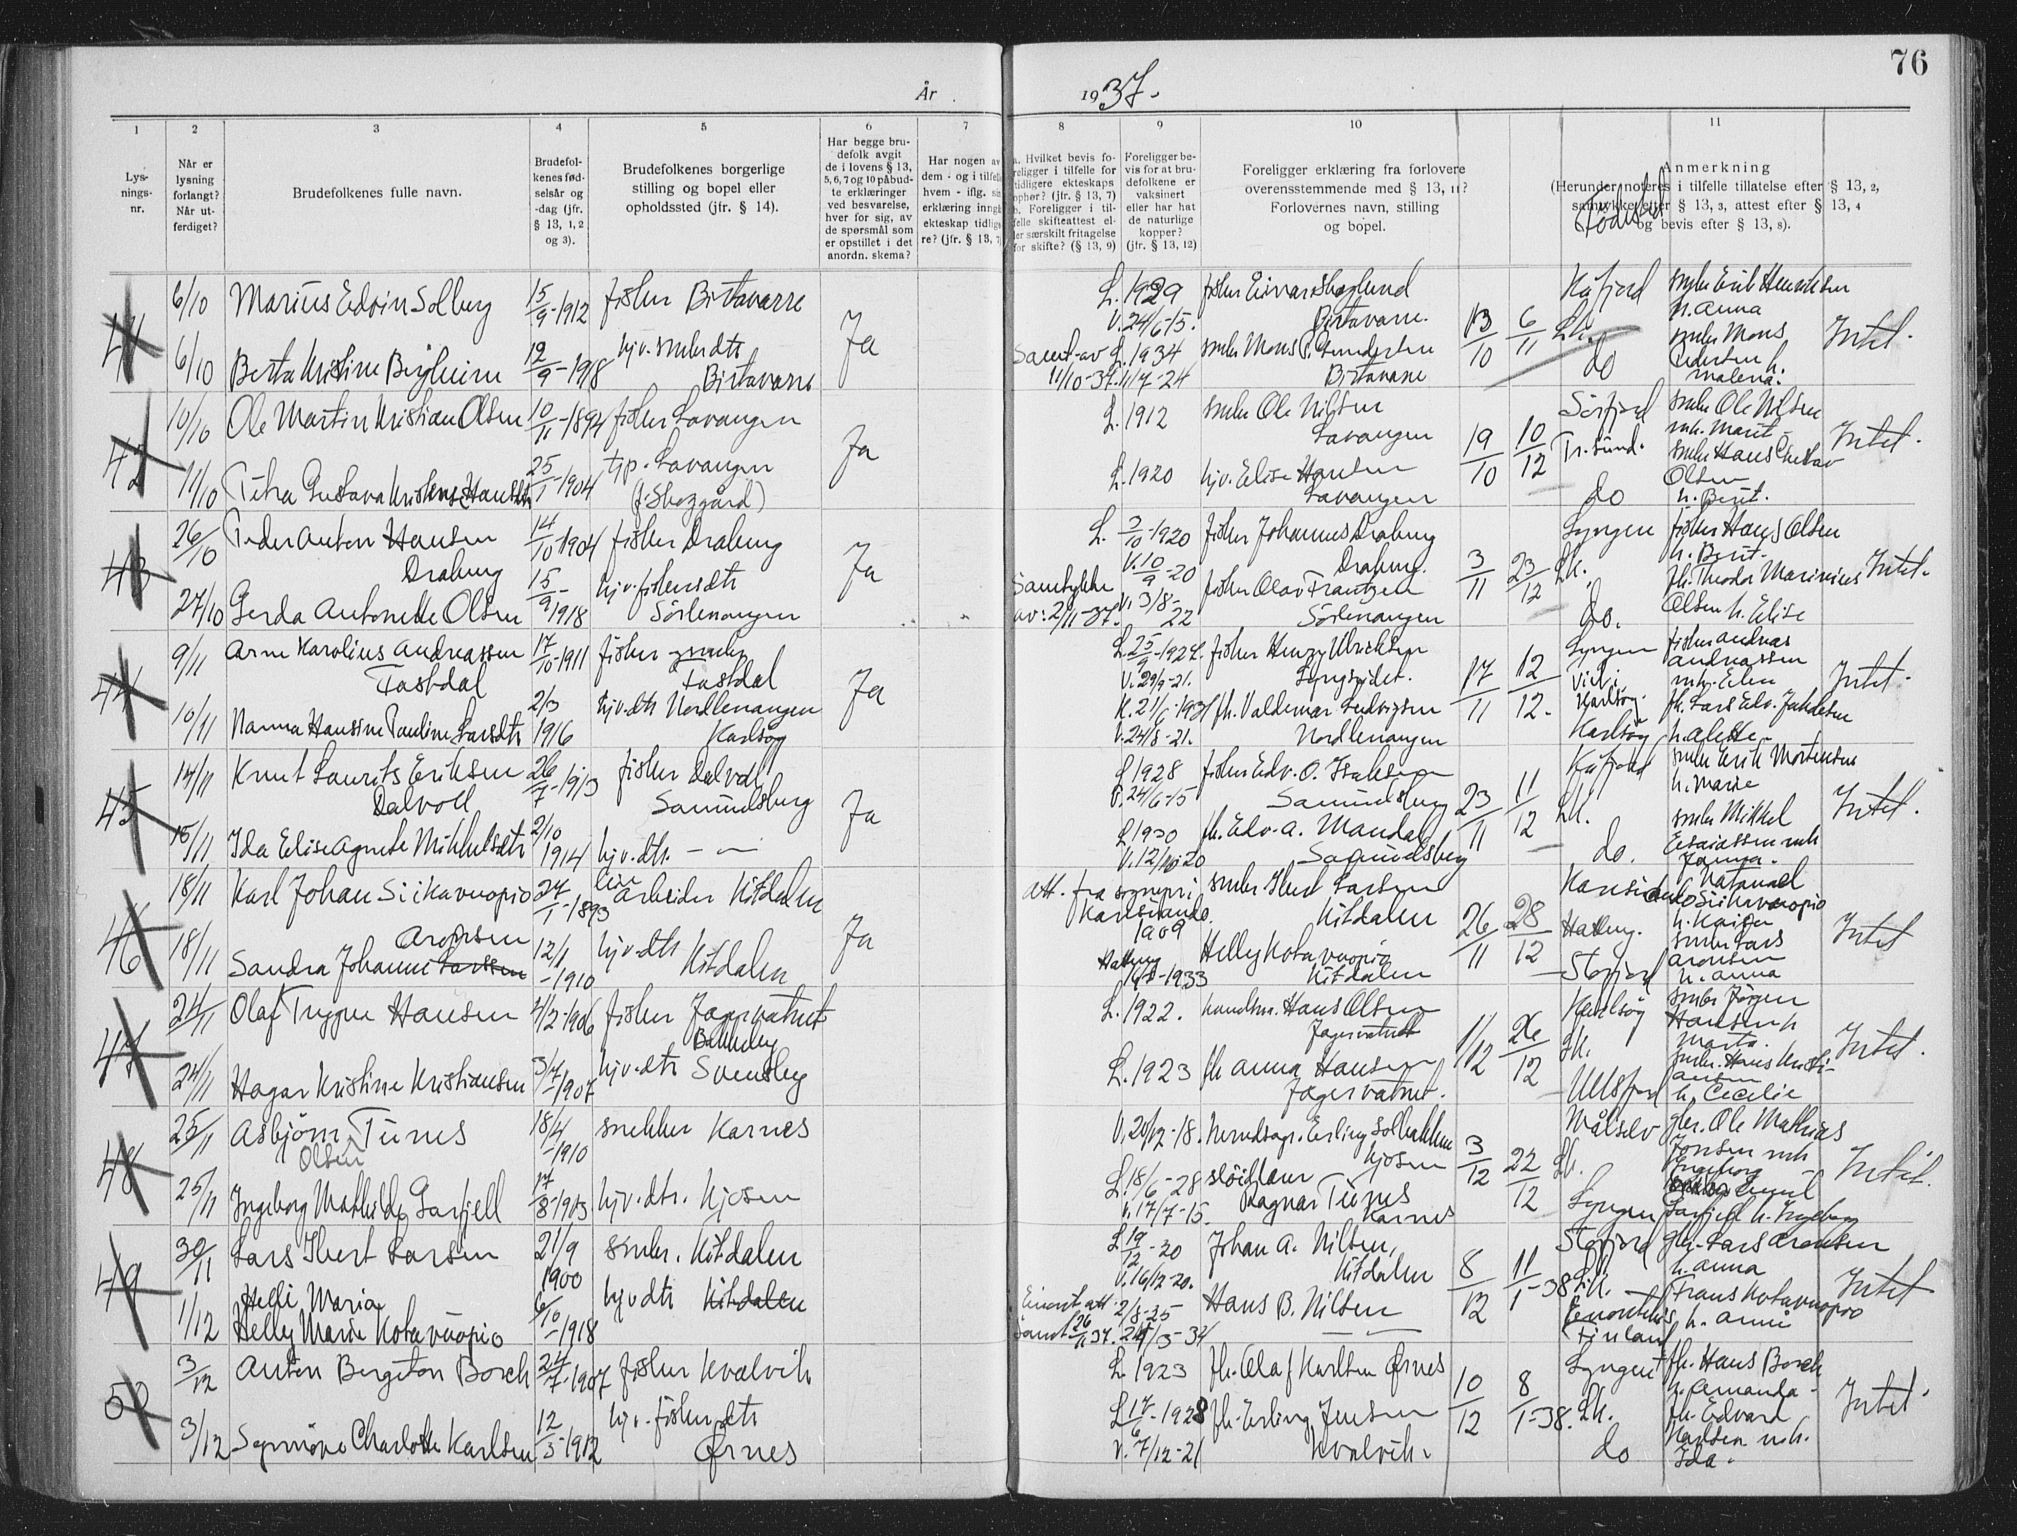 76
År 1937.
1
2
3
4
5
6
7
8
9
10
11
Lys-
nings-
nr.
Når er
lysning
forlangt?
Når ut-
ferdiget?
Brudefolkenes fulle navn.
Brudefol-
kenes fød-
selsår og
-dag (jfr.
§ 13, 1, 2
og 3).
Brudefolkenes borgerlige
stilling og bopel eller
opholdssted (jfr. § 14).
Har begge bru-
defolk avgit
de i lovens § 13,
5, 6, 7 og 10 påbud-
te erklæringer
ved besvarelse,
hver for sig, av
de spørsmål som
er opstillet i det
anordn. skema?
Har nogen av
dem - og i tilfelle
hvem - iflg. sin
erklæring inngått
ekteskap tidlige-
re? (jfr. § 13, 7
a. Hvilket bevis fo-
religger i tilfelle for
tidligere ekteskaps
ophør? (jfr. § 13, 7)
b. Foreligger i til-
felle skifteattest el-
ler særskilt fritagelse
for skifte? (§ 13, 9)
Foreligger be-
vis for at bru-
defolkene er
vaksinert
eller har hat
de naturlige
kopper?
(jfr. § 13, 12)
Foreligger erklæring fra forlovere
overensstemmende med § 13, 11?
Forlovernes navn, stilling
og bopel.
Anmerkning
(Herunder noteres i tilfelle tillatelse efter § 13, 2,
samtykke efter § 13, 3, attest efter § 13, 4
og bevis efter § 13, 8).
Fødested
6/10 Marius Edvin Solberg 15/9-1912 fisker Birtavarre
L. 1929 fisker Einar Skoglund Kåfjord
V. 24/6-15. Birtavarre. h. Anna
41 Ja 13/10 6/11 Lk. Intet.
6/10 Berta Kristine Bergheim 12/9-1918 hjv. smbrdtr Birtavarre
Samt. av L. 1934 smbr Mons P. Birtavarre do
11/10-37. h. Malena.
10/10 Ole Martin Kristian Olsen 10/11-1894 fisker Lavangen
L. 1912 smbr Ole Nilsen Lavangen Sörfjord smbr Ole Nilsen
mk. Marit
42 Ja 19/10 10/12 Tr.sund. Intet.
11/10 Petra Gustava Hansen 25/1-1904 tjp. Lavangen
L. 1920 hjv. Elise Hansen Lavangen do smbr Hans Gustav
Olsen
h. Berit.
26/10 Peder Anton Hansen Draberg 14/10-1904 fisker Draberg
L. 3/10-1920 fisker Johannes Draberg Lyngen fisker Hans Olsen
V. 10/9-20 Draberg. h. Berit.
43 Ja 3/11 23/12 Lk. Intet.
27/10 Gerda Antonette Olsen 15/9-1918 hjv. fiskersdtr Sörlenangen
Samtykke av: 2/11-37. V. 3/8-22 fisker Olav Frantzen Sörlenangen do. fh. Theodor Marinius
Olsen h. Elise
9/11 Arne Karolius Andreassen Fastdal 17/10-1911 fisker Fastdal
L. 25/9-1924. fisker Henry Ulrichsen Lyngseidet. Lyngen fisker Andreas
V. 29/9-21. Andreassen
mk. Elen
44 Ja 17/11 12/12. Karlsöy Intet.
10/11 Nanna Hansine Pauline Larsdtr 2/3 1916 hjv. dtr Nordlenangen Karlsøy
fh. Valdemar Ludvigsen Nordlenangen Karlsöy fh. Lars Edv. Johansen
V. 24/8-21. h. Alette.
14/11 Knut Laurits Eriksen Dalvoll 26/7-1913 fisker Dalvoll Samuelsberg
L. 1928 fisker Edv. O. Isaksen Samuelsberg Kåfjord smbr Erik Mortensen
V. 24/6-15 h. Marie
45 Ja 23/11 11/12 Lk. Intet.
15/11 Ida Elise Agnete Mikkelsdtr 2/10 1914 hjv. dtr. — —
L. 1930 fh. Edv. A. Mandal Samuelsberg do. smbr Mikkel
V. 12/10-20 Esaiassen mk
Hanna.
18/11 Karl Johan Siikavuopio 24/1-1893 arbeider Kitdalen
att. fra sognepr. i Karesuando 1909 smbr Ibert Larsen Kitdalen Karesuando Natanael
Siikavuopio
h. Kaisa
46 Ja 26/11 28/12 Intet
18/11 Sandra Johanne Larsen Aronsen 12/1-1910 hjv. dtr Kitdalen
1933 Helly Kotavuopio Kitdalen Storfjord smbr Lars
Aronsen
h. Anna
24/11 Olaf Trygve Hansen 4/2-1906 fisker Jægervatnet
L. 1922. handlsm. Hans Olsen Jægervatnet Karlsöy smbr Jörgen
Hansen h
Marta.
47 11/12 28/12 Lk. Intet.
24/11 Hagar Kristine Kristiansen 3/7-1907 hjv. dtr Svensby
L. 1923 fh Anna Hansen Jægervatnet. Ullsfjord smbr. Hans Kristi-
ansen
h. Cecilie
25/11 Asbjørn Olsen Tunes 18/4-1910 snekker Karnes
V. 20/12-18. herredsagr. Erling Solbakken Kjosen Målselv gbr. Ole Mathias
Jensen mk
Ingeborg
48 3/12 22/12 Lk. Intet.
25/11 Ingeborg Mathilde Gasfjell 17/8-1903 hjv. dtr. Kjosen
L. 18/6-28 slöidlærer Ragnar Tunes Karnes Lyngen
V. 17/7-15. h. Ingeborg
30/11 Lars Ibert Larsen 21/9 1900 smbr. Kitdalen
L. 19/12-20 Johan A. Nilsen, Kitdalen Storfjord gbr. Lars Aronsen
V. 16/12-20. h. Anna
49 8/12 11/1-38 Lk. Intet
1/12 Helli Maria
Helly Marie Kotavuopio 6/10-1918 hjv dtr Kitdalen
Enont. att. 2/8-35 Hans B. Nilsen — Enontekis Finland Frans Kotavuopio
h. Anni
3/12 Anton Bergeton Borch 24/7-1907 fisker Kvalvik
L. 1923 fh. Olaf Karlsen Ørnes Lyngen fh. Hans Borch
h. Amanda.
50 10/12 8/1-38. Lk. Intet.
3/12 Synnöve Charlotte Karlsen 12/5-1912 hjv. fiskerdtr Ørnes
L. 17/6-1928 fh. Erling Jensen Kvalvik. do fh. Edvard
V. 7/12-21 Karlsen mk.
Ida.